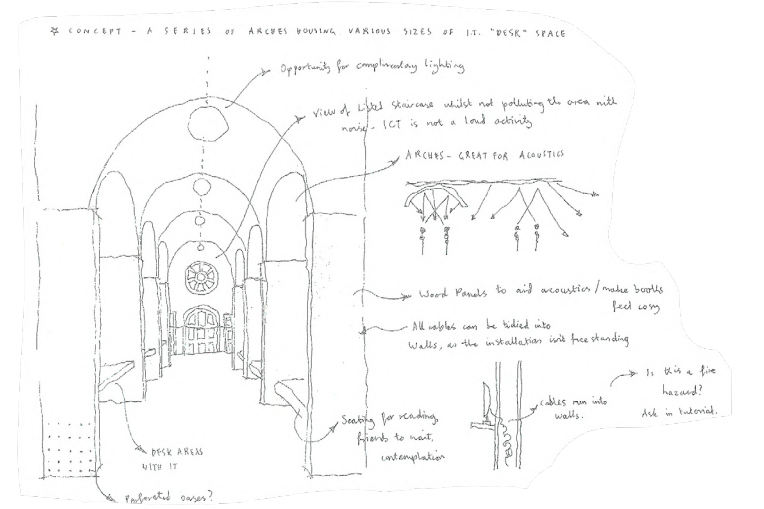 ☆ CONCEPT - A SERIES OF ARCHES HOUSING VARIOUS SIZES OF I.T. "DESK" SPACE
Opportunity for complimentary lighting
View of Listed Staircase whilst not polluting the area with
noise - ICT is not a loud activity
ARCHES - GREAT FOR ACOUSTICS
Wood Panels to aid acoustics / make booths
feel cosy
All cables can be tidied into
Walls, as the installation isn't freestanding
Is this a fire
hazard?
Ask in tutorial.
cables run into
walls.
Seating for reading,
friends to wait,
contemplation
DESK AREAS
WITH IT
Perforated bases?